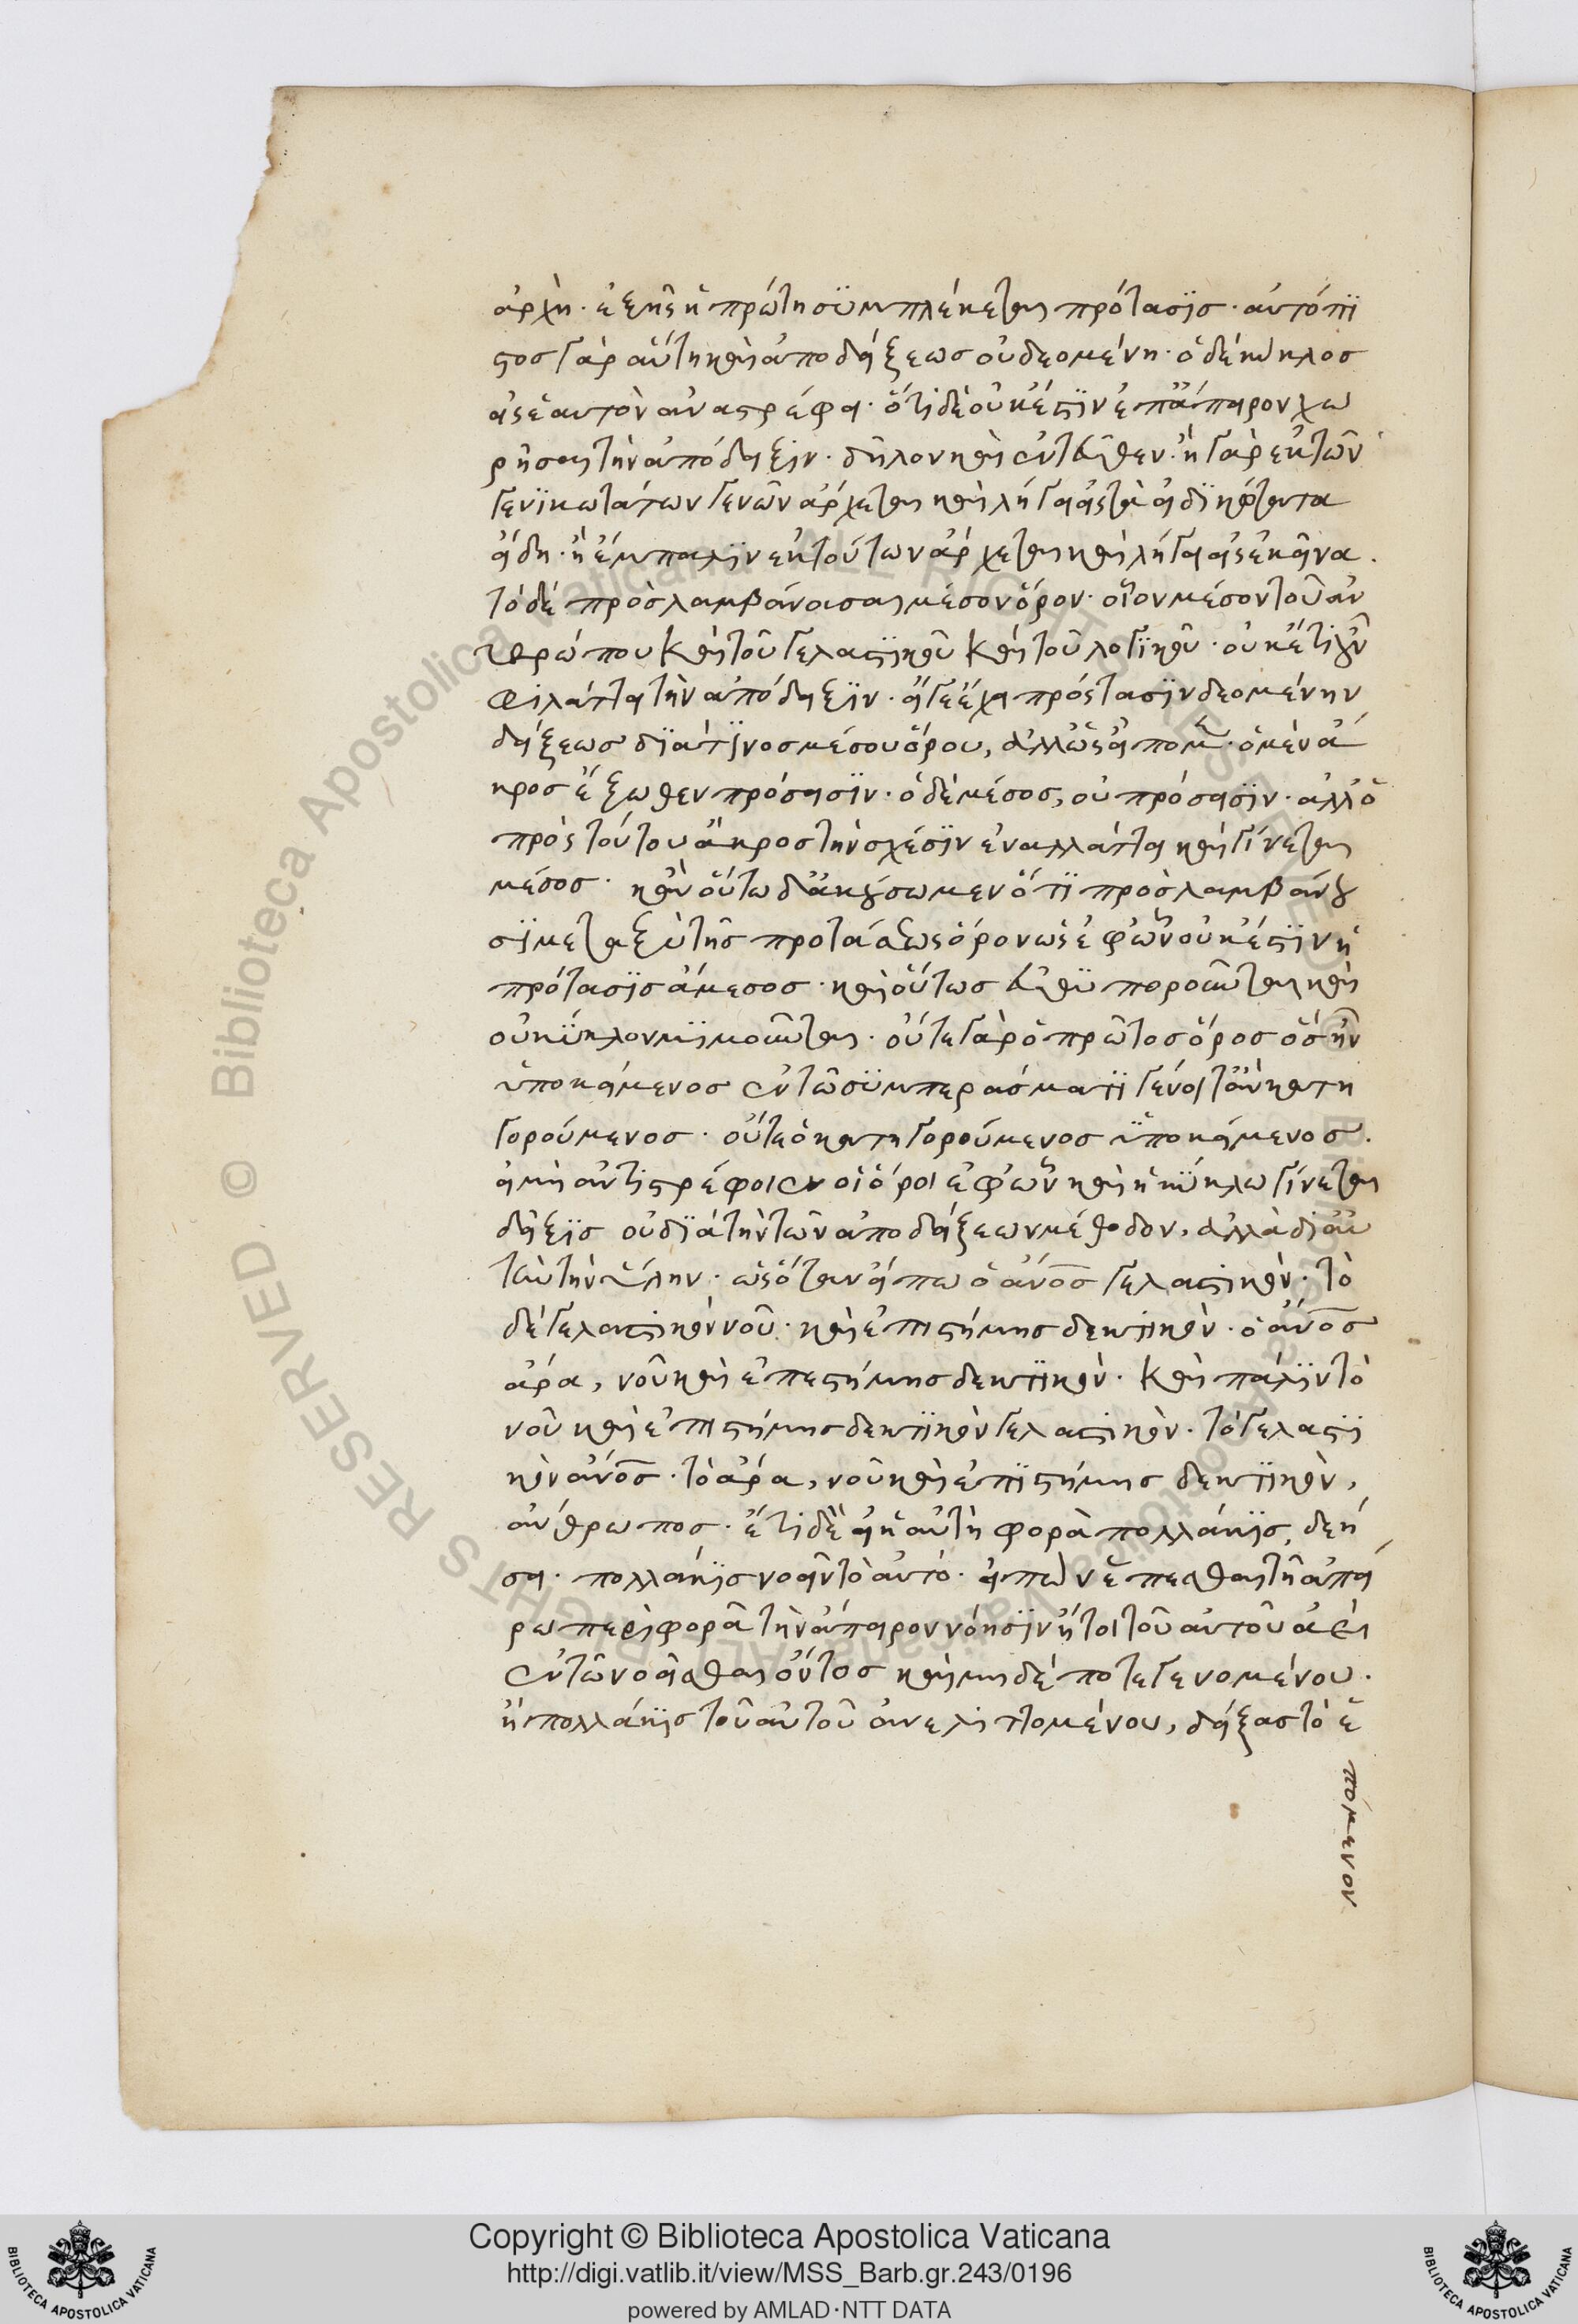 ἀρχή· ἐξ ἧς ἡ πρώτη συμπλέκεται πρότασις· αὐτόπι
στος γὰρ αὕτη καὶ ἀποδείξεως οὐ δεομένη· ὁ δὲ κύκλος
εἰς ἑαυτὸν ἀναστρέφει· ὅτι δὲ οὐκ ἔστιν ἐπ' ἄπειρον χω
ρῆσαι τὴν ἀπόδειξιν· δῆλον καὶ ἐντεῦθεν· ἢ γὰρ ἐκ τῶν
γενικωτάτων γενῶν ἄρχεται καὶ λήγει εἰς τὰ εἰδικώτατα
εἴδη· ἢ ἔμπαλιν ἐκ τούτων ἄρχεται καὶ λήγει εἰς ἐκεῖνα.
τὸ δὲ προσλαμβάνεισαι μέσον ὅρον· οἷον μέσον τοῦ ἀν
θρώπου καὶ τοῦ γελαστικοῦ καὶ τοῦ λογικοῦ· οὐκέτι οὖν
φυλάττει τὴν ἀπόδειξιν· εἴγε ἔχει πρότασιν δεομένην
δείξεως διά τινος μέσου ὅρου, ἄλλως εἴπομεν· ὁ μὲν ἄ
κρος ἔξωθεν πρόσεισιν· ὁ δὲ μέσος, οὐ πρόσεισιν· ἀλλ' ὁ
πρὸς τούτου ἄκρος τὴν σχέσιν ἐναλλάττει καὶ γίνεται
μέσος· κἂν οὕτω διακούσωμεν ὅτι προσλαμβάνου
σι μεταξὺ τῆς προτάσεως ὅρον ὡς ἐφ' ὧν οὐκ ἔστιν ἡ
πρότασις ἄμεσος· καὶ οὕτως εὐθυποροῦνται καὶ
οὐ κύκλον μιμοῦνται· οὔτε γὰρ ὁ πρῶτος ὅρος ὃς ἦν
ὑποκείμενος ἐν τῷ συμπεράσματι γένοιτ' ἂν κατη
γορούμενος· οὔτε ὁ κατηγορούμενος ὑποκείμενος.
εἰ μὴ ἀντιστρέφοιεν οἱ ὅροι ἐφ' ὧν καὶ ἡ κύκλω γίνεται
δεῖξις οὐ διὰ τὴν τῶν ἀποδείξεων μέθοδον, ἀλλὰ διὰ
ταύτην ὕλην· ὡς ὅταν εἴπω ὁ ἄνος γελαστικὸν· τὸ
δὲ γελαστικὸν νοῦ· καὶ ἐπιστήμης δεκτικὸν· ὁ ἄνος
ἄρα, νοῦ καὶ ἐπεστήμης δεκτικὸν· καὶ πάλιν τὸ
νοῦ καὶ ἐπιστήμης δεκτικὸν γελαστικὸν· τὸ γελαστι
κὸν ἄνος· τὸ ἄρα, νοῦ καὶ ἐπιστήμης δεκτικὸν,
ἄνθρωπος· ἔτι δὲ εἰ ἡ αὐτὴ φορὰ πολλάκις, δεή
σει· πολλάκις νοεῖν τὸ αὐτό· εἰπὼν ἕπεσθαι τῇ ἀπεί
ρω περιφορᾶ τὴν ἄπειρον νόησιν ἤτοι τοῦ αὐτοῦ ἀεὶ
ἐν τῷ νοεῖσθαι ὄντος καὶ μηδέποτε γενομένου.
ἢ πολλάκις τοῦ αὐτοῦ ἀνελιττομένου, δείξας τὸ ἑ
πόμενον
Copyright © Biblioteca Apostolica Vaticana
http://digi.vatlib.it/view/MSS_Barb.gr.243/0196
powered by AMLAD·NTT DATA